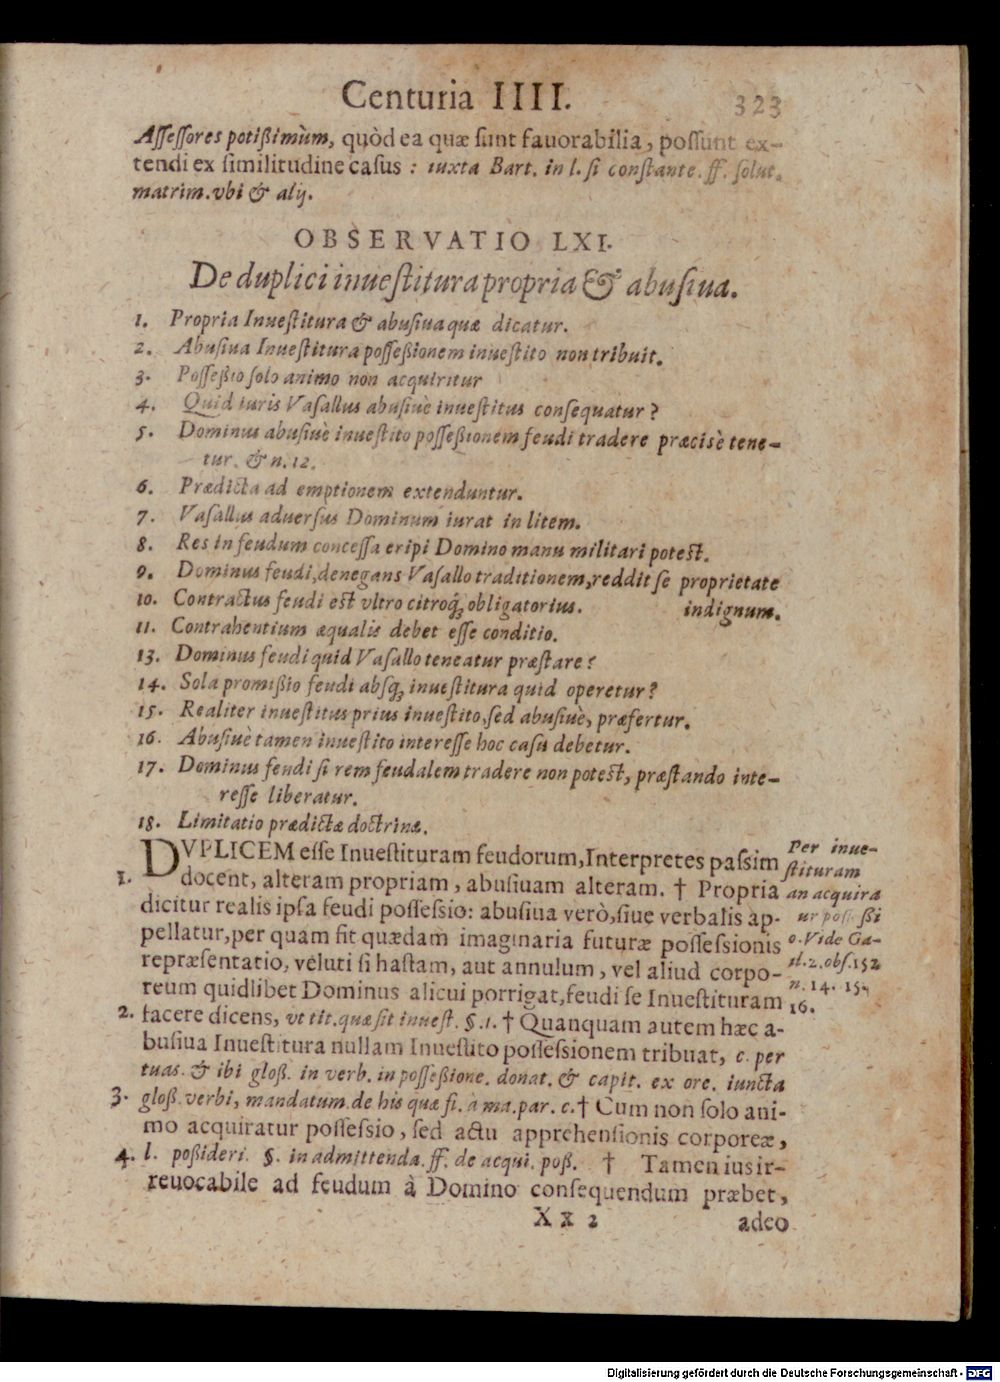 Centuria IIII. 323
Aſſeſſores potißimùm, quòd ea quæ ſunt fauorabilia, poſſunt ex-
tendi ex ſimilitudine caſus : iuxta Bart. in l. ſi conſtante. ff. ſolut.
matrim. vbi & alij.
OBSERVATIO LXI.
De duplici inueſtitura propria & abuſiua.
1. Propria Inueſtitura & abuſiua quæ dicatur.
2. Abuſiua Inueſtitura poſſeßionem inueſtito non tribuit.
3. Poſſeßio ſolo animo non acquiritur
4. Quid iuris Vaſallus abuſiuè inueſtitus conſequatur ?
5. Dominus abuſiuè inueſtito poſſeßionem feudi tradere præcisè tene-
tur. & n. 12.
6. Prædicta ad emptionem extenduntur.
7. Vaſallus aduerſus Dominum iurat in litem.
8. Res in feudum conceſſa eripi Domino manu militari poteſt.
9. Dominus feudi, denegans Vaſallo traditionem, reddit ſe proprietate
10. Contractus feudi eſt vltro citroq́; obligatorius. indignum.
11. Contrahentium æqualis debet eſſe conditio.
13. Dominus feudi quid Vaſallo teneatur præſtare ?
14. Sola promißio feudi abſq́; inueſtitura quid operetur ?
15. Realiter inueſtitus prius inueſtito, ſed abuſiuè, præfertur.
16. Abuſiuè tamen inueſtito intereſſe hoc caſu debetur.
17. Dominus feudi ſi rem feudalem tradere non poteſt, præſtando inte-
reſſe liberatur.
18. Limitatio prædictæ doctrinæ.
DVPLICEM eſſe Inueſtituram feudorum, Interpretes paſsim
1. docent, alteram propriam, abuſiuam alteram. † Propria
dicitur realis ipſa feudi poſſeſsio: abuſiua verò, ſiue verbalis ap-
pellatur, per quam fit quædam imaginaria futuræ poſſeſsionis
repræſentatio, veluti ſi haſtam, aut annulum, vel aliud corpo-
reum quidlibet Dominus alicui porrigat, feudi ſe Inueſtituram
2. facere dicens, vt tit. quæ ſit inueſt. §. 1. † Quanquam autem hæc a-
buſiua Inueſtitura nullam Inueſtito poſſeſsionem tribuat, c. per
tuas. & ibi gloß. in verb. in poſſeßione. donat. & capit. ex ore. iuncta
3. gloß. verbi, mandatum. de his quæ fi. à ma. par. c. † Cum non ſolo ani-
mo acquiratur poſſeſsio, ſed actu apprehenſionis corporeæ,
4. l. poßideri. §. in admittenda. ff. de acqui. poß. † Tamen ius ir-
reuocabile ad feudum à Domino conſequendum præbet,
X x 2 adeo
Per inue-
ſtituram
an acquira
ur poſſ. ßi
o. Vide Ga-
il. 2. obſ. 152
n. 14. 15.
16.
Digitalisierung gefördert durch die Deutsche Forschungsgemeinschaft - DFG